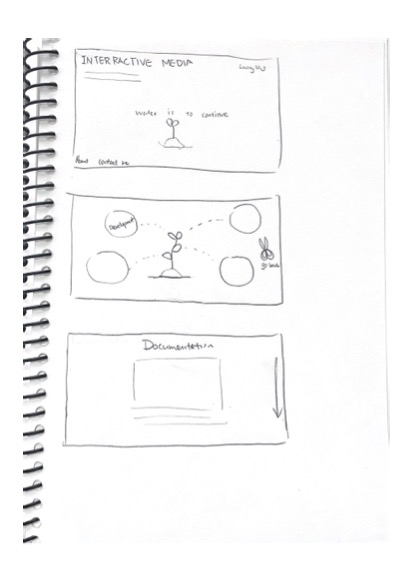 INTERRACTIVE MEDIA
water is to continue
About contact me
Development
go back
Documentation